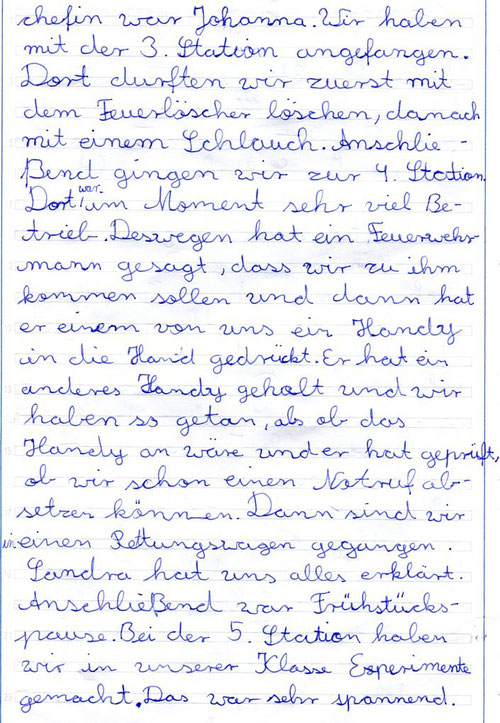 chefin war Johanna. Wir haben
mit der 3. Station angefangen.
Dort durften wir zuerst mit
dem Feuerlöscher löschen, danach
mit einem Schlauch. Anschlie-
ßend gingen wir zur 4. Station.
Dort war im Moment sehr viel Be-
trieb. Deswegen hat ein Feuerwehr
mann gesagt, dass wir zu ihm
kommen sollen und dann hat
er einem von uns ein Handy
in die Hand gedrückt. Er hat ein
anderes Handy geholt und wir
haben so getan, als ob das
Handy an wäre und er hat geprüft,
ob wir schon einen Notruf ab-
setzen können. Dann sind wir
in einen Rettungswagen gegangen.
Sandra hat uns alles erklärt.
Anschließend war Frühstücks-
pause. Bei der 5. Station haben
wir in unserer Klasse Experimente
gemacht. Das war sehr spannend.